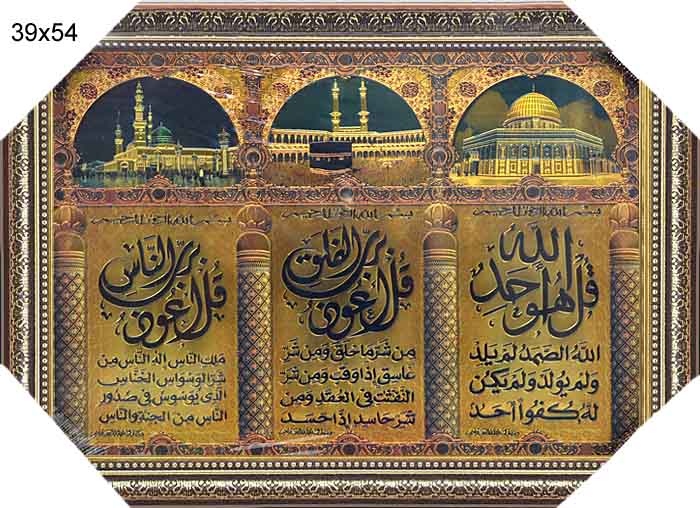 39x54
بسم الله الرحمن الرحيم
قل هو الله أحد
الله الصمد لم يلد
ولم يولد ولم يكن
له كفوا أحد
بسم الله الرحمن الرحيم
قل أعوذ برب الفلق
من شر ما خلق ومن شر
غاسق إذا وقب ومن شر
النفثت في العقد ومن
شر حاسد إذا حسد
بسم الله الرحمن الرحيم
قل أعوذ برب الناس
ملك الناس إله الناس من
شر الوسواس الخناس
الذي يوسوس في صدور
الناس من الجنة والناس